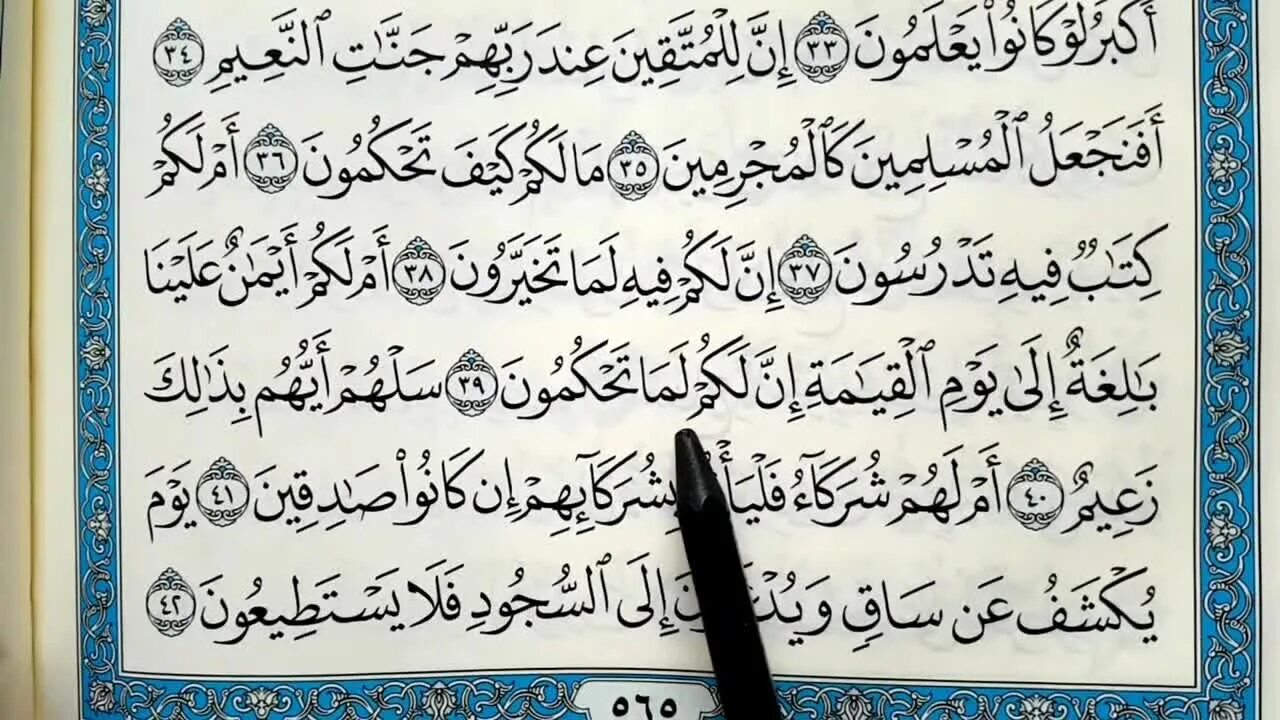 أَكْبَرُ لَوْ كَانُوا۟ يَعْلَمُونَ ٣٣ إِنَّ لِلْمُتَّقِينَ عِندَ رَبِّهِمْ جَنَّٰتِ ٱلنَّعِيمِ ٣٤
أَفَنَجْعَلُ ٱلْمُسْلِمِينَ كَٱلْمُجْرِمِينَ ٣٥ مَا لَكُمْ كَيْفَ تَحْكُمُونَ ٣٦ أَمْ لَكُمْ
كِتَٰبٌ فِيهِ تَدْرُسُونَ ٣٧ إِنَّ لَكُمْ فِيهِ لَمَا تَخَيَّرُونَ ٣٨ أَمْ لَكُمْ أَيْمَٰنٌ عَلَيْنَا
بَٰلِغَةٌ إِلَىٰ يَوْمِ ٱلْقِيَٰمَةِ إِنَّ لَكُمْ لَمَا تَحْكُمُونَ ٣٩ سَلْهُمْ أَيُّهُم بِذَٰلِكَ
زَعِيمٌ ٤٠ أَمْ لَهُمْ شُرَكَآءُ بِشُرَكَآئِهِمْ إِن كَانُوا۟ صَٰدِقِينَ ٤١ يَوْمَ
يُكْشَفُ عَن سَاقٍ إِلَى ٱلسُّجُودِ فَلَا يَسْتَطِيعُونَ ٤٢
٥٦٥